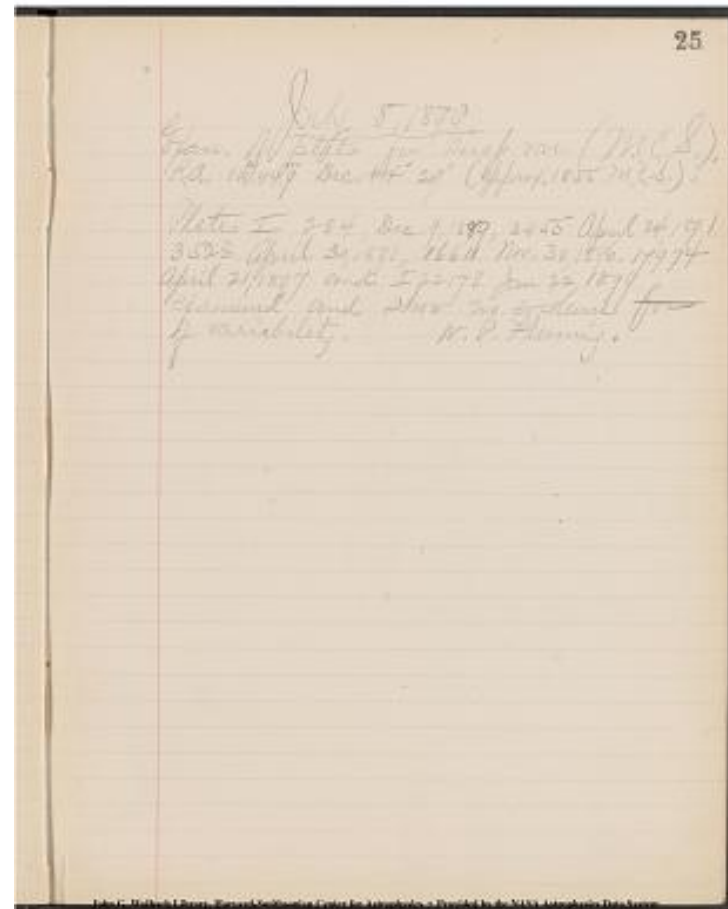 25
July 5, 1899
Exam. of plates for susp. var. (M.C.S.),
R.A. Dec. 20' (Approx. 1855 M.C.S.).
Plates I 284 Dec 9, 1889, 2455 April 24, 1891
3523 April 30, 1892, 16611 Nov. 30, 1896, 17974
April 21, 1897 and I 22178 Jan 22, 1899
examined and show no evidence
of variability. W. P. Fleming.
John G. Wolbach Library, Harvard-Smithsonian Center for Astrophysics • Provided by the NASA Astrophysics Data System